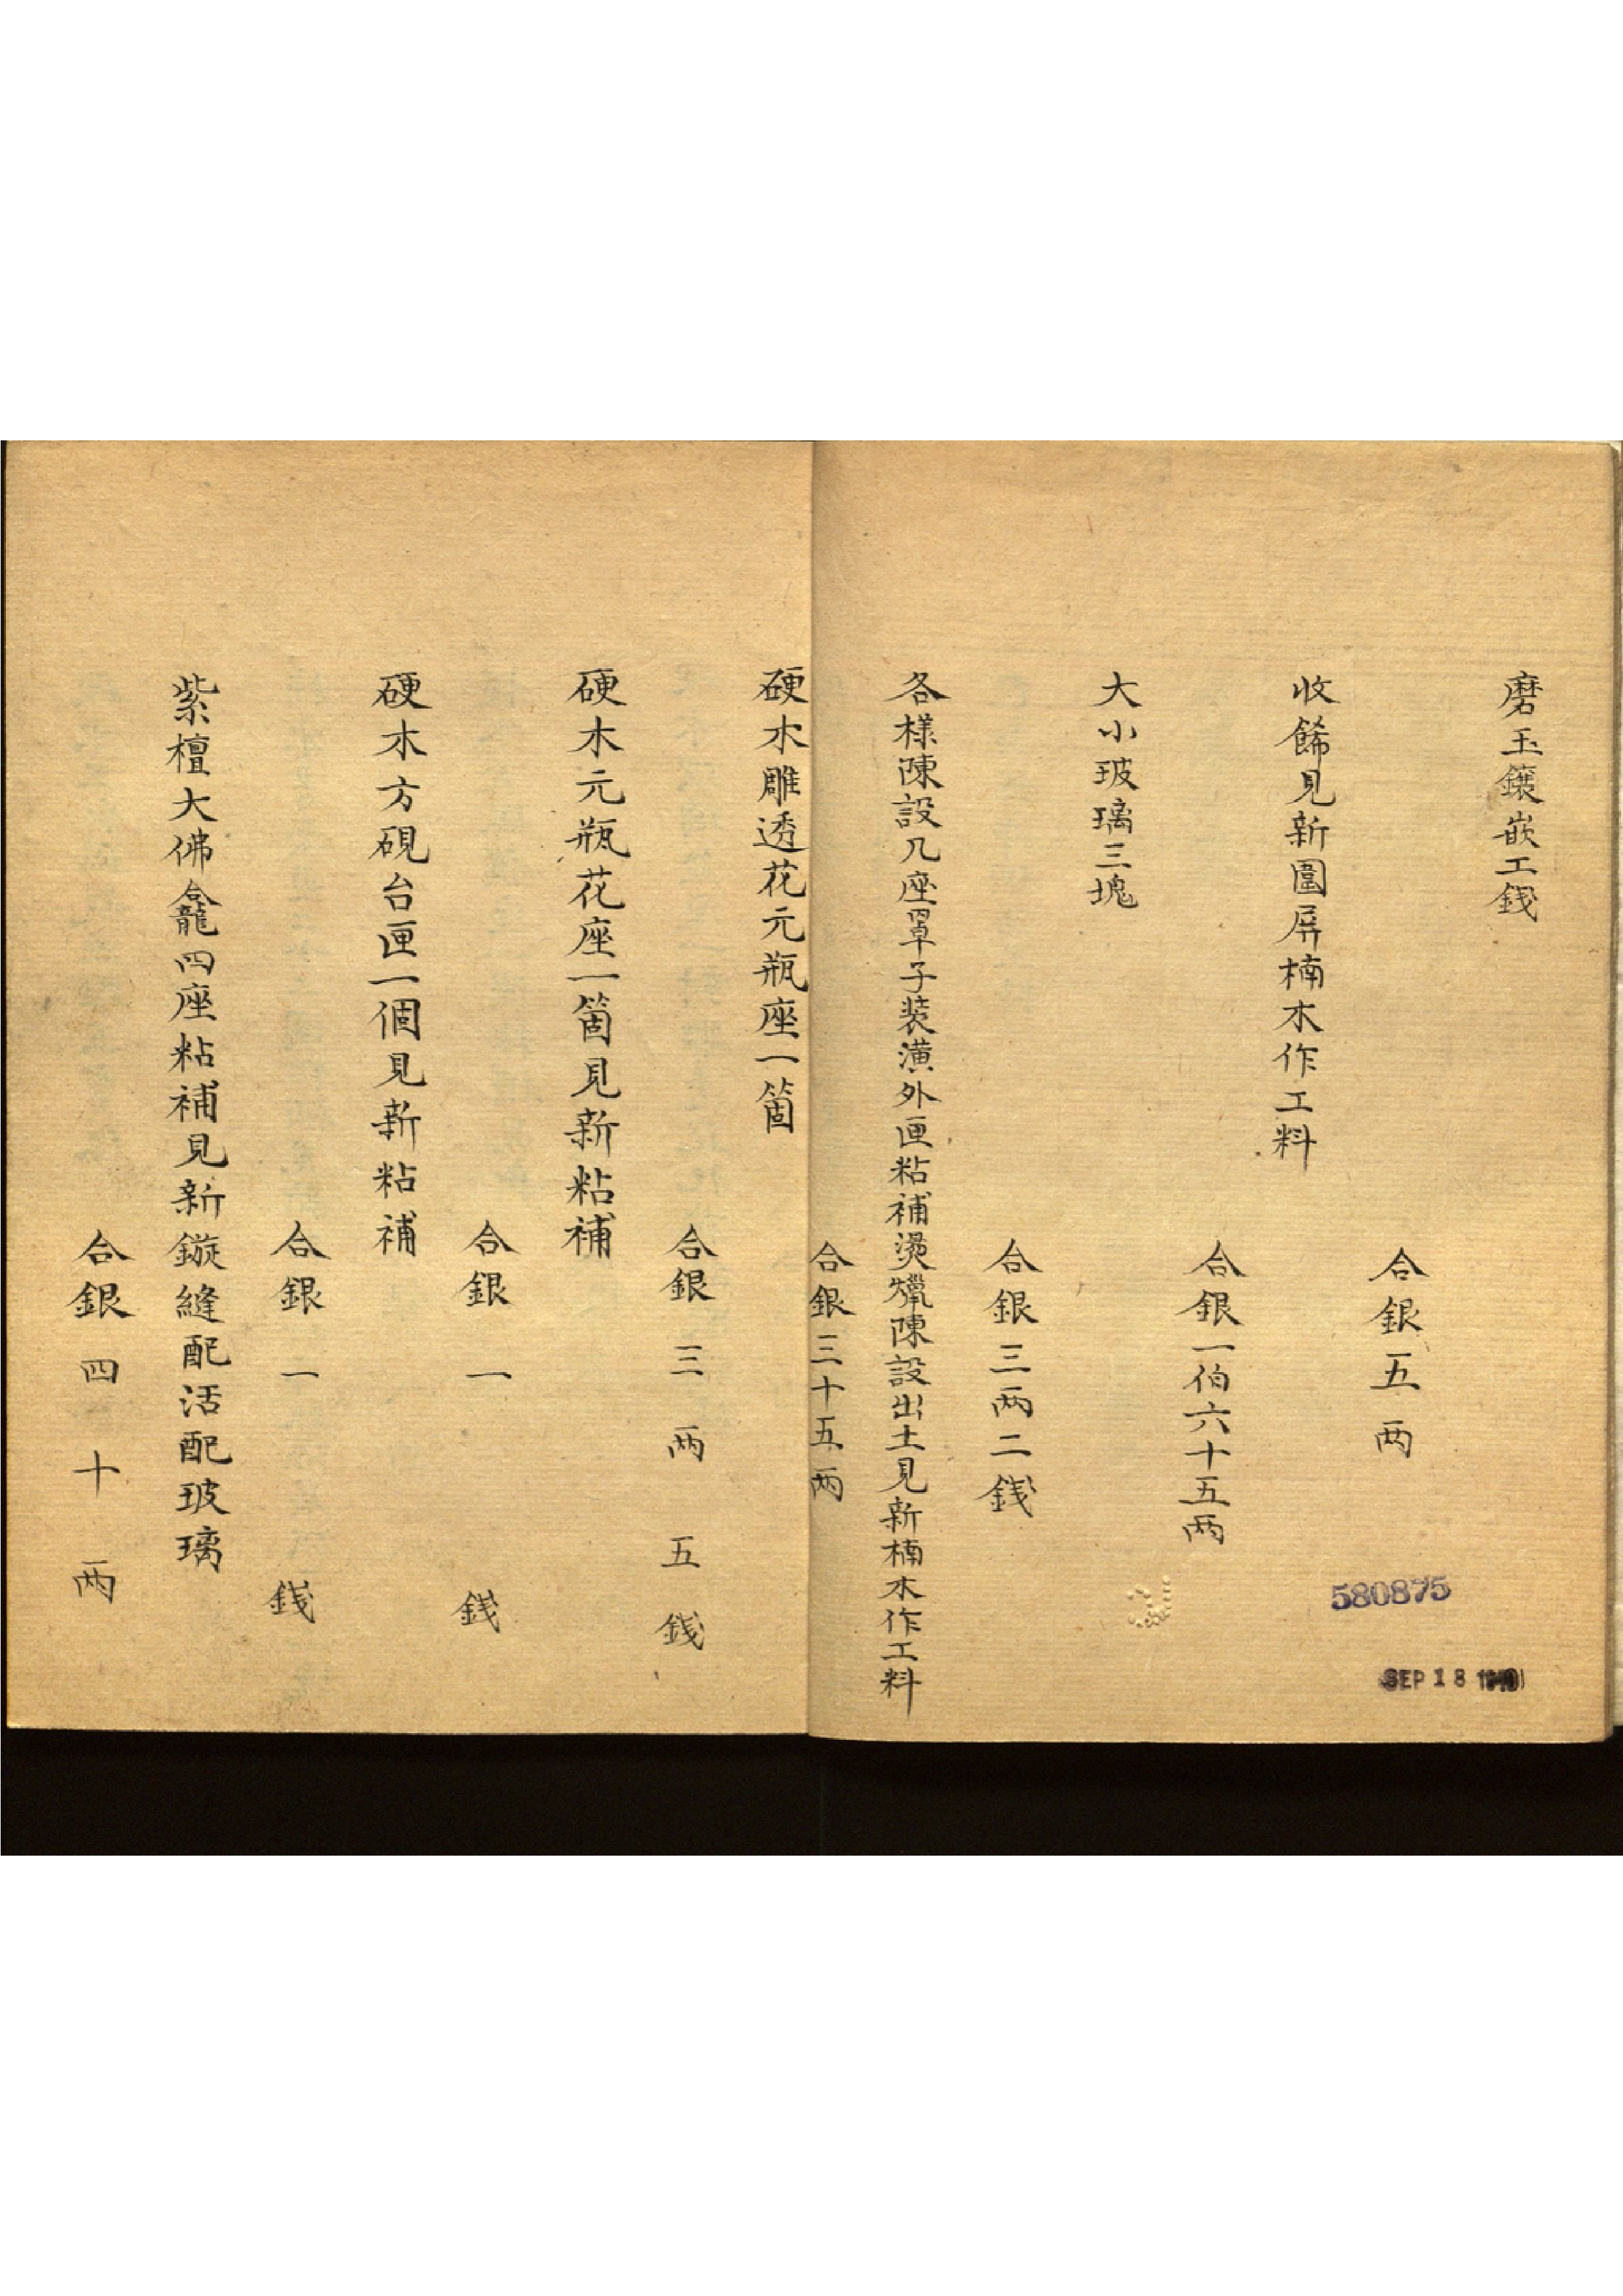 磨玉鑲嵌工錢
合銀五两
收餙見新圍屏楠木作工料
合銀一佰六十五两
大小玻璃三塊
合銀三两二錢
各樣陳設几座罩子装潢外匣粘補燙蠟陳設出土見新楠木作工料
合銀三十五两
硬木雕透花元瓶座一箇
合銀三两五錢
硬木元瓶花座一箇見新粘補
合銀一錢
硬木方硯台匣一個見新粘補
合銀一錢
紫檀大佛龕四座粘補見新鏇縫配活配玻璃
合銀四十两
580875
SEP 18